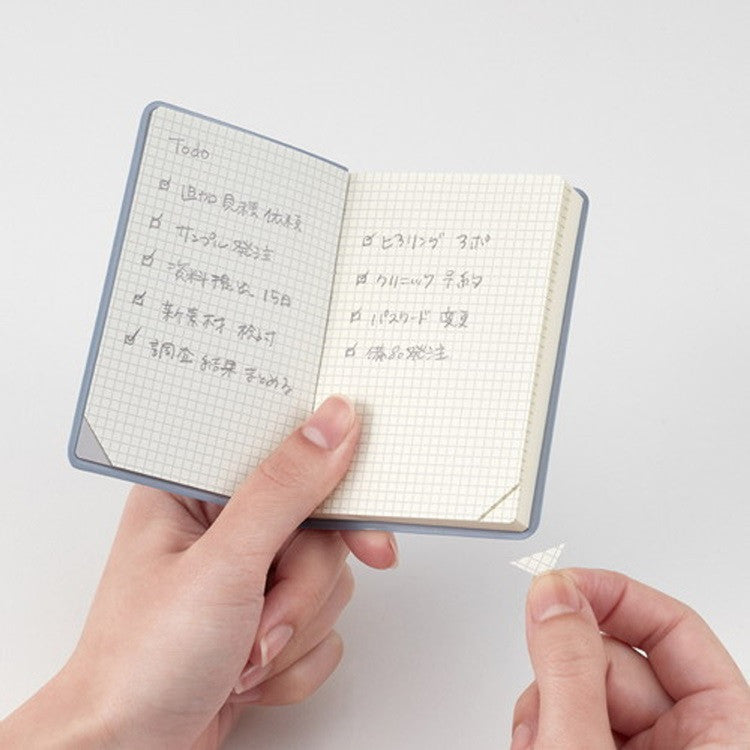 Todo
追加見積 依頼
サンプル発注
資料提出 15日
新素材 検討
調査 結果 まとめる
ヒアリング メモ
クリニック 予約
パスワード 変更
備品発注